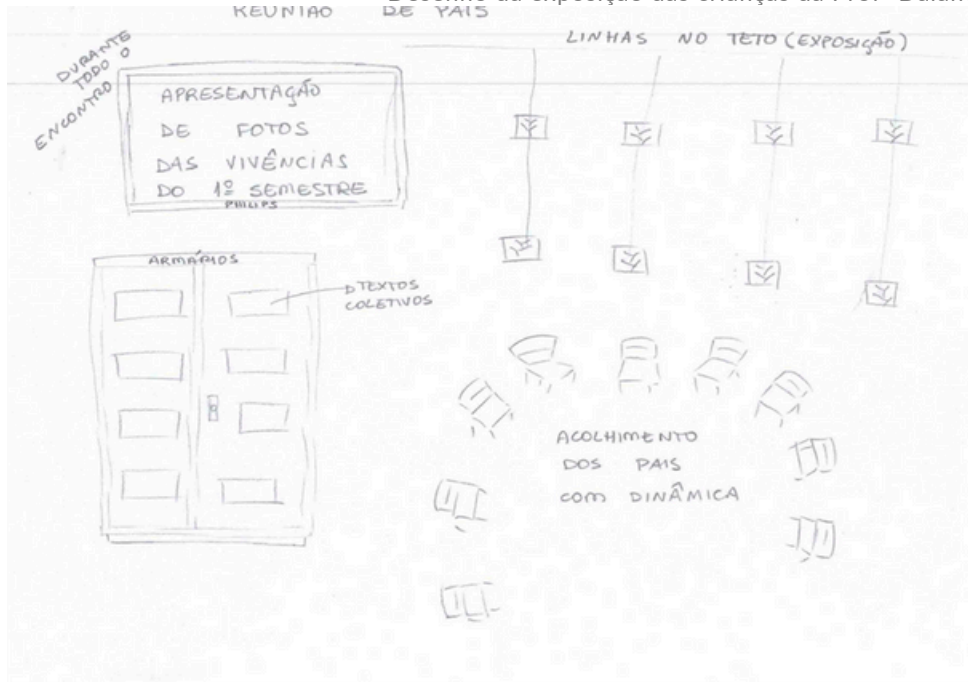 REUNIÃO DE PAIS
LINHAS NO TETO (EXPOSIÇÃO)
DURANTE
TODO O
ENCONTRO
APRESENTAÇÃO
DE FOTOS
DAS VIVÊNCIAS
DO 1º SEMESTRE
PHILIPS
ARMÁRIOS
TEXTOS
COLETIVOS
ACOLHIMENTO
DOS PAIS
COM DINÂMICA